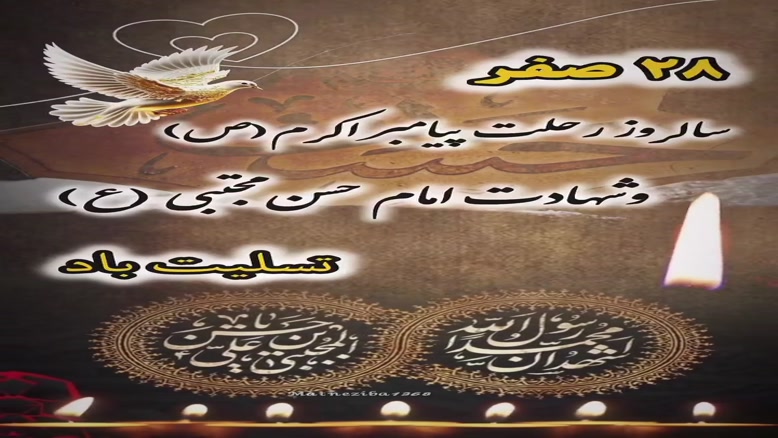 ۲۸ صفر
سالروز رحلت پیامبر اکرم (ص)
وشهادت امام حسن مجتبی (ع)
تسلیت باد
اشهد ان محمدا رسول الله
یا حسن بن علی المجتبی
Matneziba1968